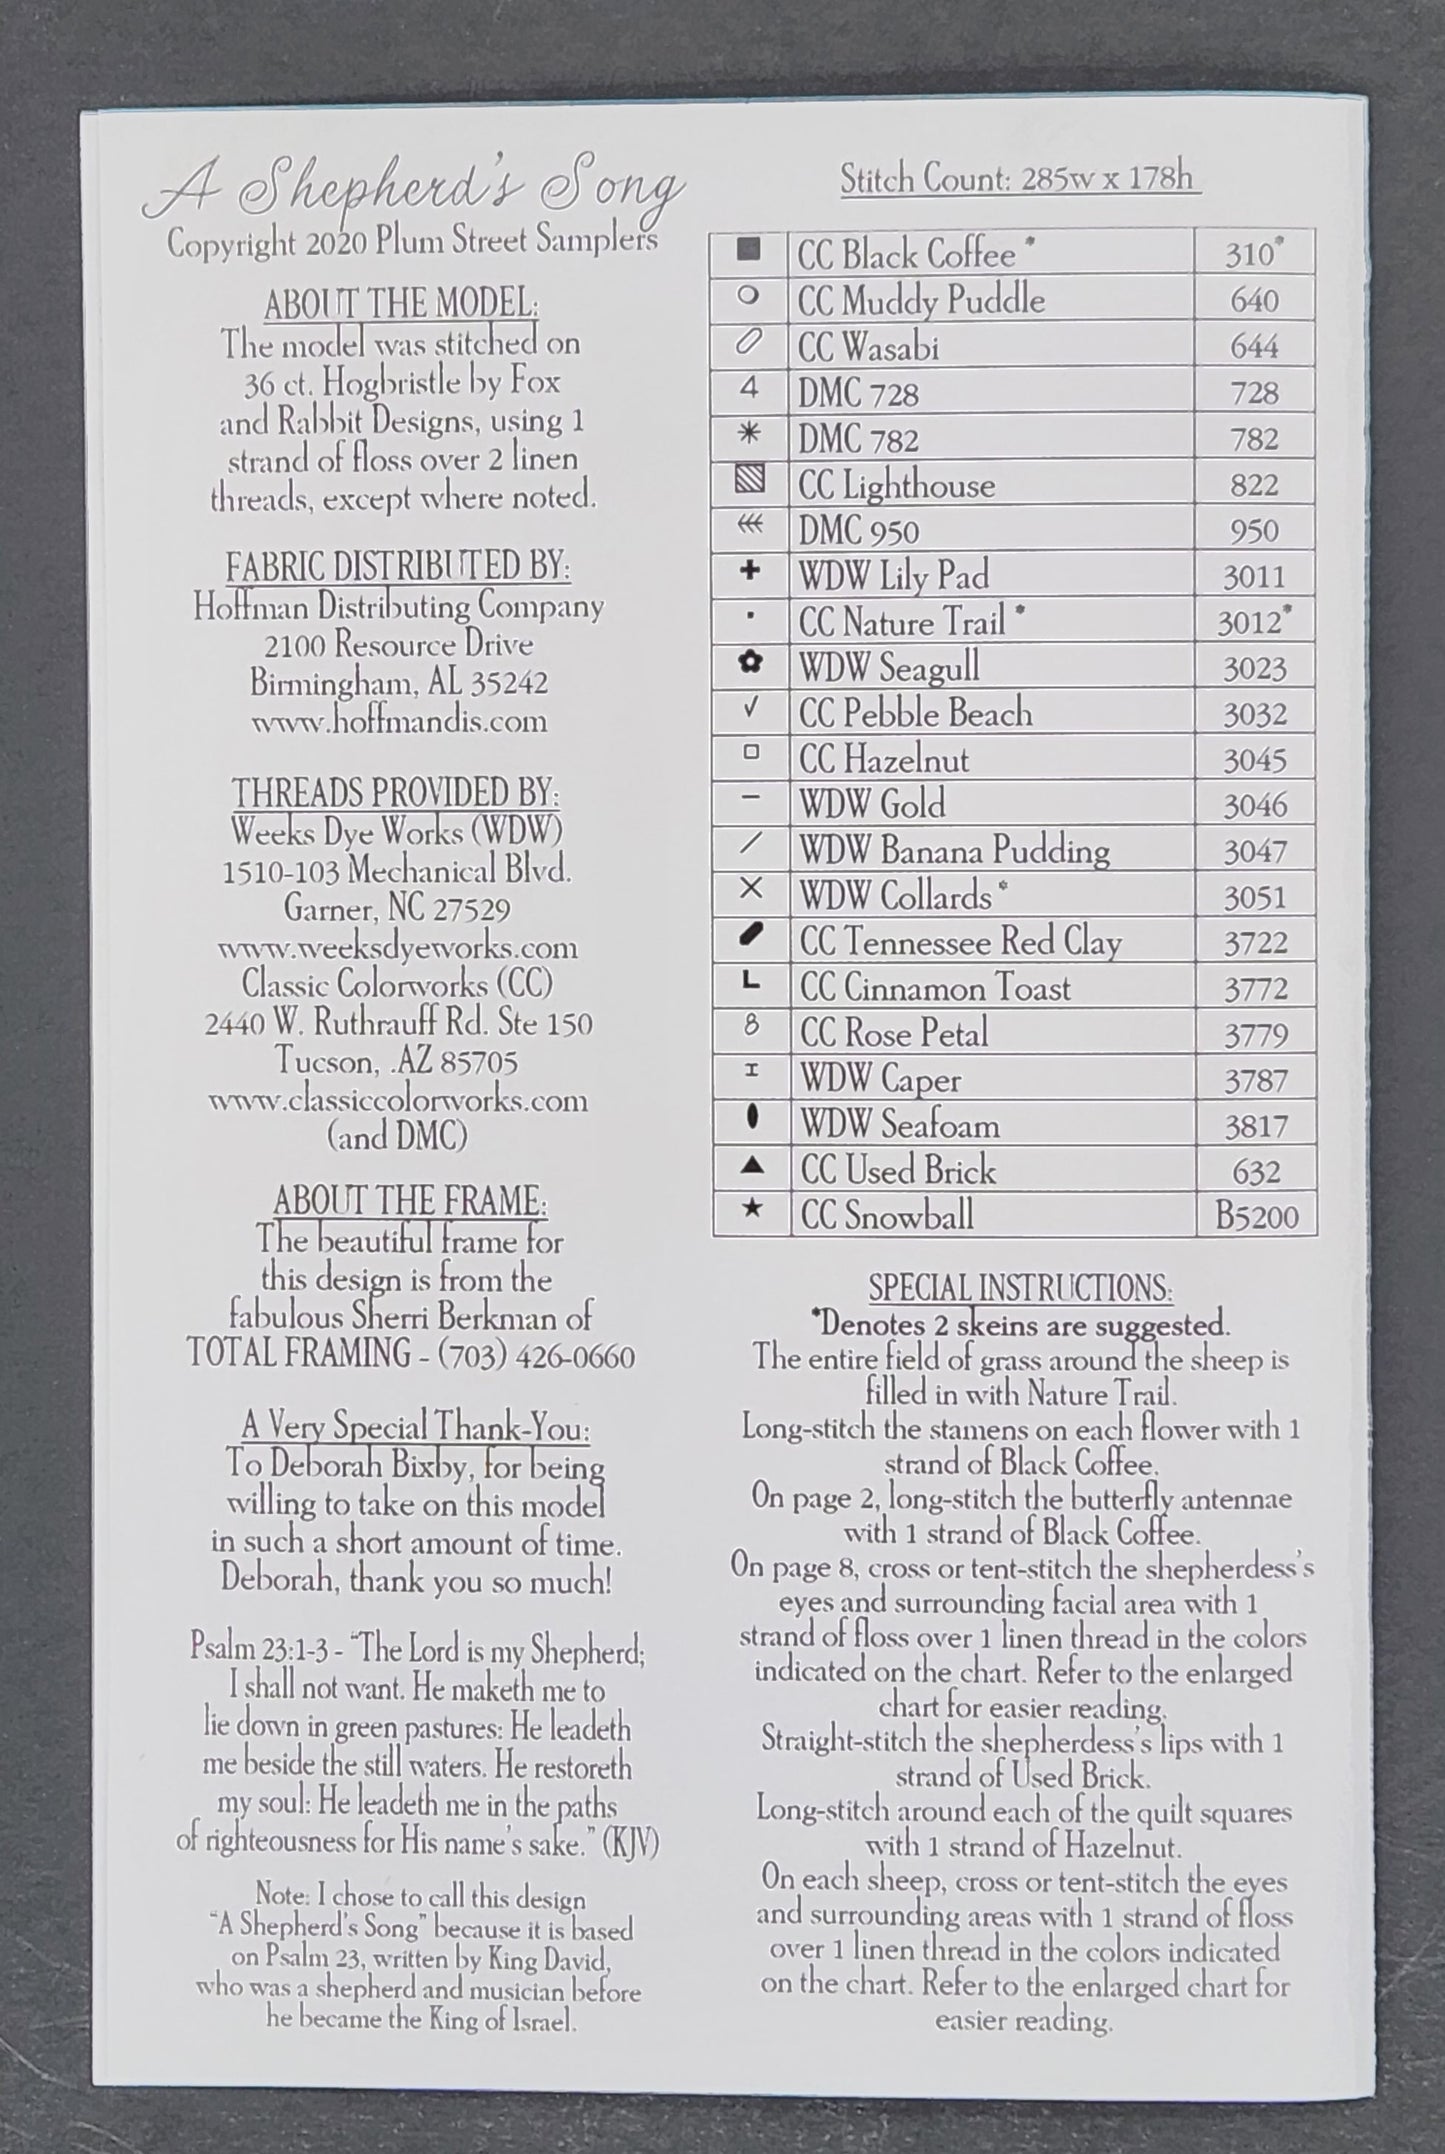 A Shepherd's Song
Copyright 2020 Plum Street Samplers
ABOUT THE MODEL:
The model was stitched on
36 ct. Hogbristle by Fox
and Rabbit Designs, using 1
strand of floss over 2 linen
threads, except where noted.
FABRIC DISTRIBUTED BY:
Hoffman Distributing Company
2100 Resource Drive
Birmingham, AL 35242
www.hoffmandis.com
THREADS PROVIDED BY:
Weeks Dye Works (WDW)
1510-103 Mechanical Blvd.
Garner, NC 27529
www.weeksdyeworks.com
Classic Colorworks (CC)
2440 W. Ruthrauff Rd. Ste 150
Tucson, .AZ 85705
www.classiccolorworks.com
(and DMC)
ABOUT THE FRAME:
The beautiful frame for
this design is from the
fabulous Sherri Berkman of
TOTAL FRAMING - (703) 426-0660
A Very Special Thank-You:
To Deborah Bixby, for being
willing to take on this model
in such a short amount of time.
Deborah, thank you so much!
Psalm 23:1-3 - "The Lord is my Shepherd;
I shall not want. He maketh me to
lie down in green pastures: He leadeth
me beside the still waters. He restoreth
my soul: He leadeth me in the paths
of righteousness for His name's sake." (KJV)
Note: I chose to call this design
"A Shepherd's Song" because it is based
on Psalm 23, written by King David,
who was a shepherd and musician before
he became the King of Israel.
Stitch Count: 285w x 178h
■ CC Black Coffee * 310*
○ CC Muddy Puddle 640
CC Wasabi 644
4 DMC 728 728
* DMC 782 782
CC Lighthouse 822
DMC 950 950
+ WDW Lily Pad 3011
· CC Nature Trail * 3012*
✿ WDW Seagull 3023
√ CC Pebble Beach 3032
□ CC Hazelnut 3045
− WDW Gold 3046
/ WDW Banana Pudding 3047
X WDW Collards * 3051
CC Tennessee Red Clay 3722
L CC Cinnamon Toast 3772
8 CC Rose Petal 3779
I WDW Caper 3787
WDW Seafoam 3817
▲ CC Used Brick 632
★ CC Snowball B5200
SPECIAL INSTRUCTIONS:
*Denotes 2 skeins are suggested.
The entire field of grass around the sheep is
filled in with Nature Trail.
Long-stitch the stamens on each flower with 1
strand of Black Coffee.
On page 2, long-stitch the butterfly antennae
with 1 strand of Black Coffee.
On page 8, cross or tent-stitch the shepherdess's
eyes and surrounding facial area with 1
strand of floss over 1 linen thread in the colors
indicated on the chart. Refer to the enlarged
chart for easier reading.
Straight-stitch the shepherdess's lips with 1
strand of Used Brick.
Long-stitch around each of the quilt squares
with 1 strand of Hazelnut.
On each sheep, cross or tent-stitch the eyes
and surrounding areas with 1 strand of floss
over 1 linen thread in the colors indicated
on the chart. Refer to the enlarged chart for
easier reading.